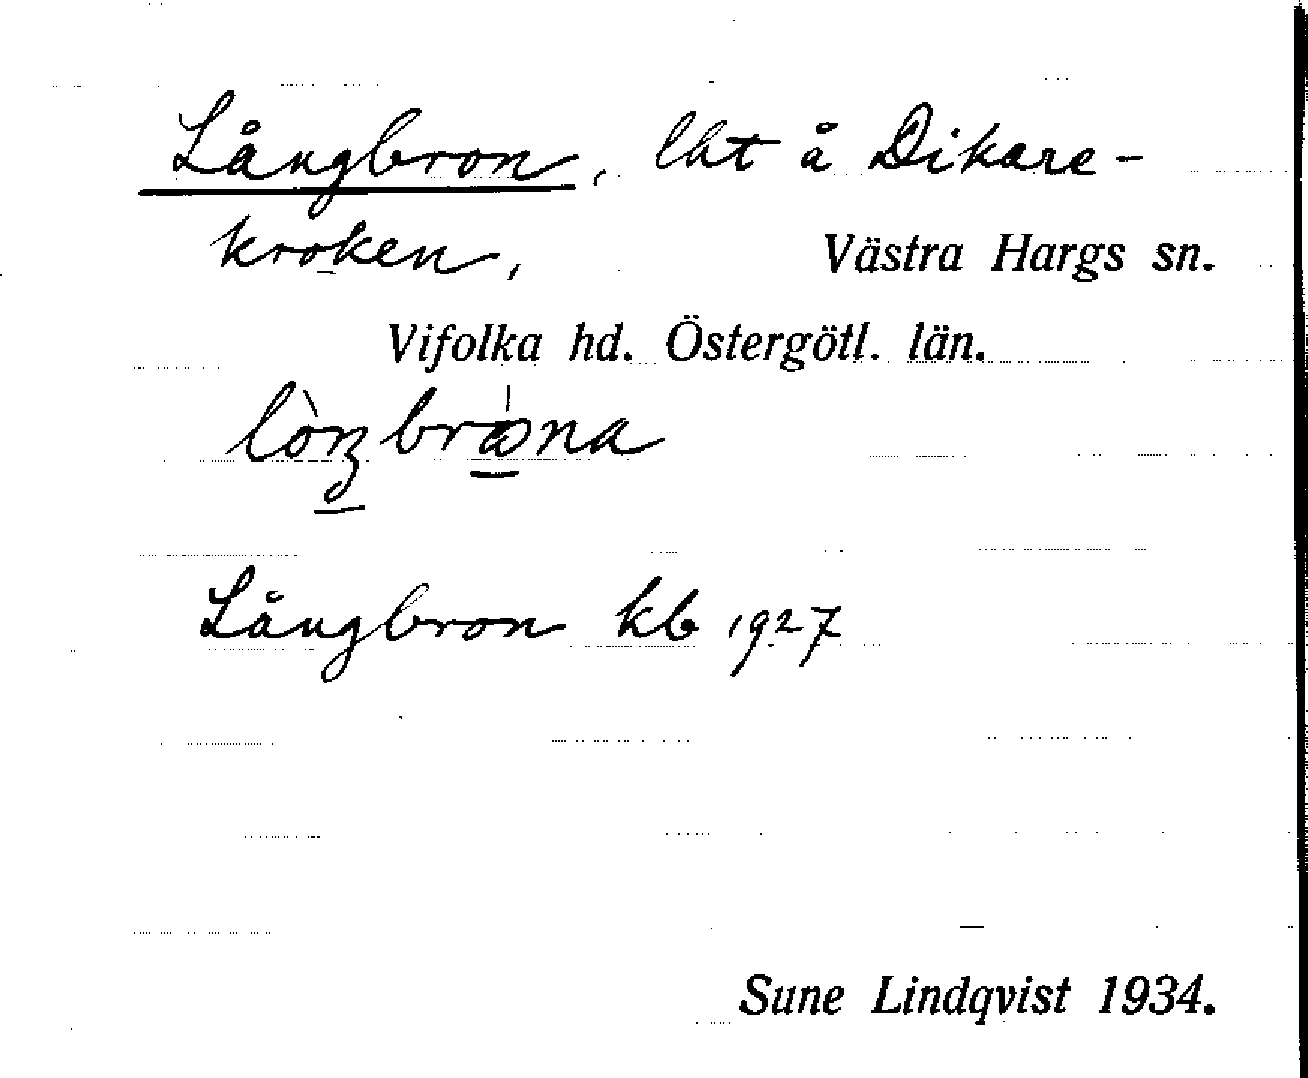 Långbron, lht å Dikare-
kroken, Västra Hargs sn.
Vifolka hd. Östergötl. län.
Långbron kb 1927
Sune Lindqvist 1934.